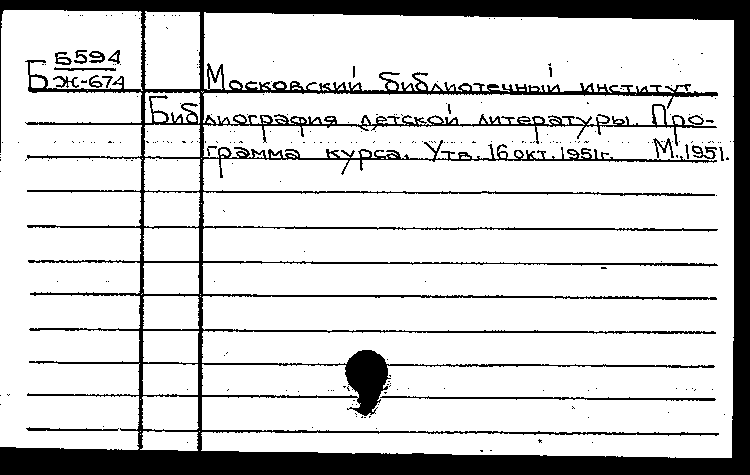 Б Б594
Ж-674 Московский библиотечный институт.
Библиография детской литературы. Про-
грамма курса. Утв. 16 окт. 1951г. М., 1951.